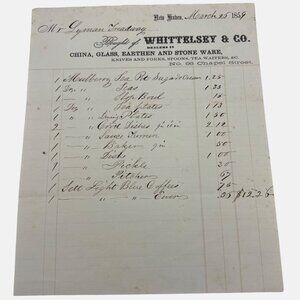 New Haven, March 25 1859
Mr Lyman Treadway
Bought of WHITTELSEY & CO.
DEALERS IN
CHINA, GLASS, EARTHEN AND STONE WARE,
KNIVES AND FORKS, SPOONS, TEA WAITERS, &C.
No. Chapel Street.
1 Mulberry Tea Pot Sugar & Cream 1.25
1 Doz " Teas 1.25
1 - " Slop Bowl 15
1 Doz " Tea Plates 1.13
1 " " Plates 1.50
2 - " Cov'd Dishes
1 - " Sauce Tureen 1.00
1 - " Baker
1 - " Dish 1.00
1 - " Pickle
1 - " Pitcher
1 Sett Light Blue Coffees 75
1 - " - " Ewer .25 $12.26